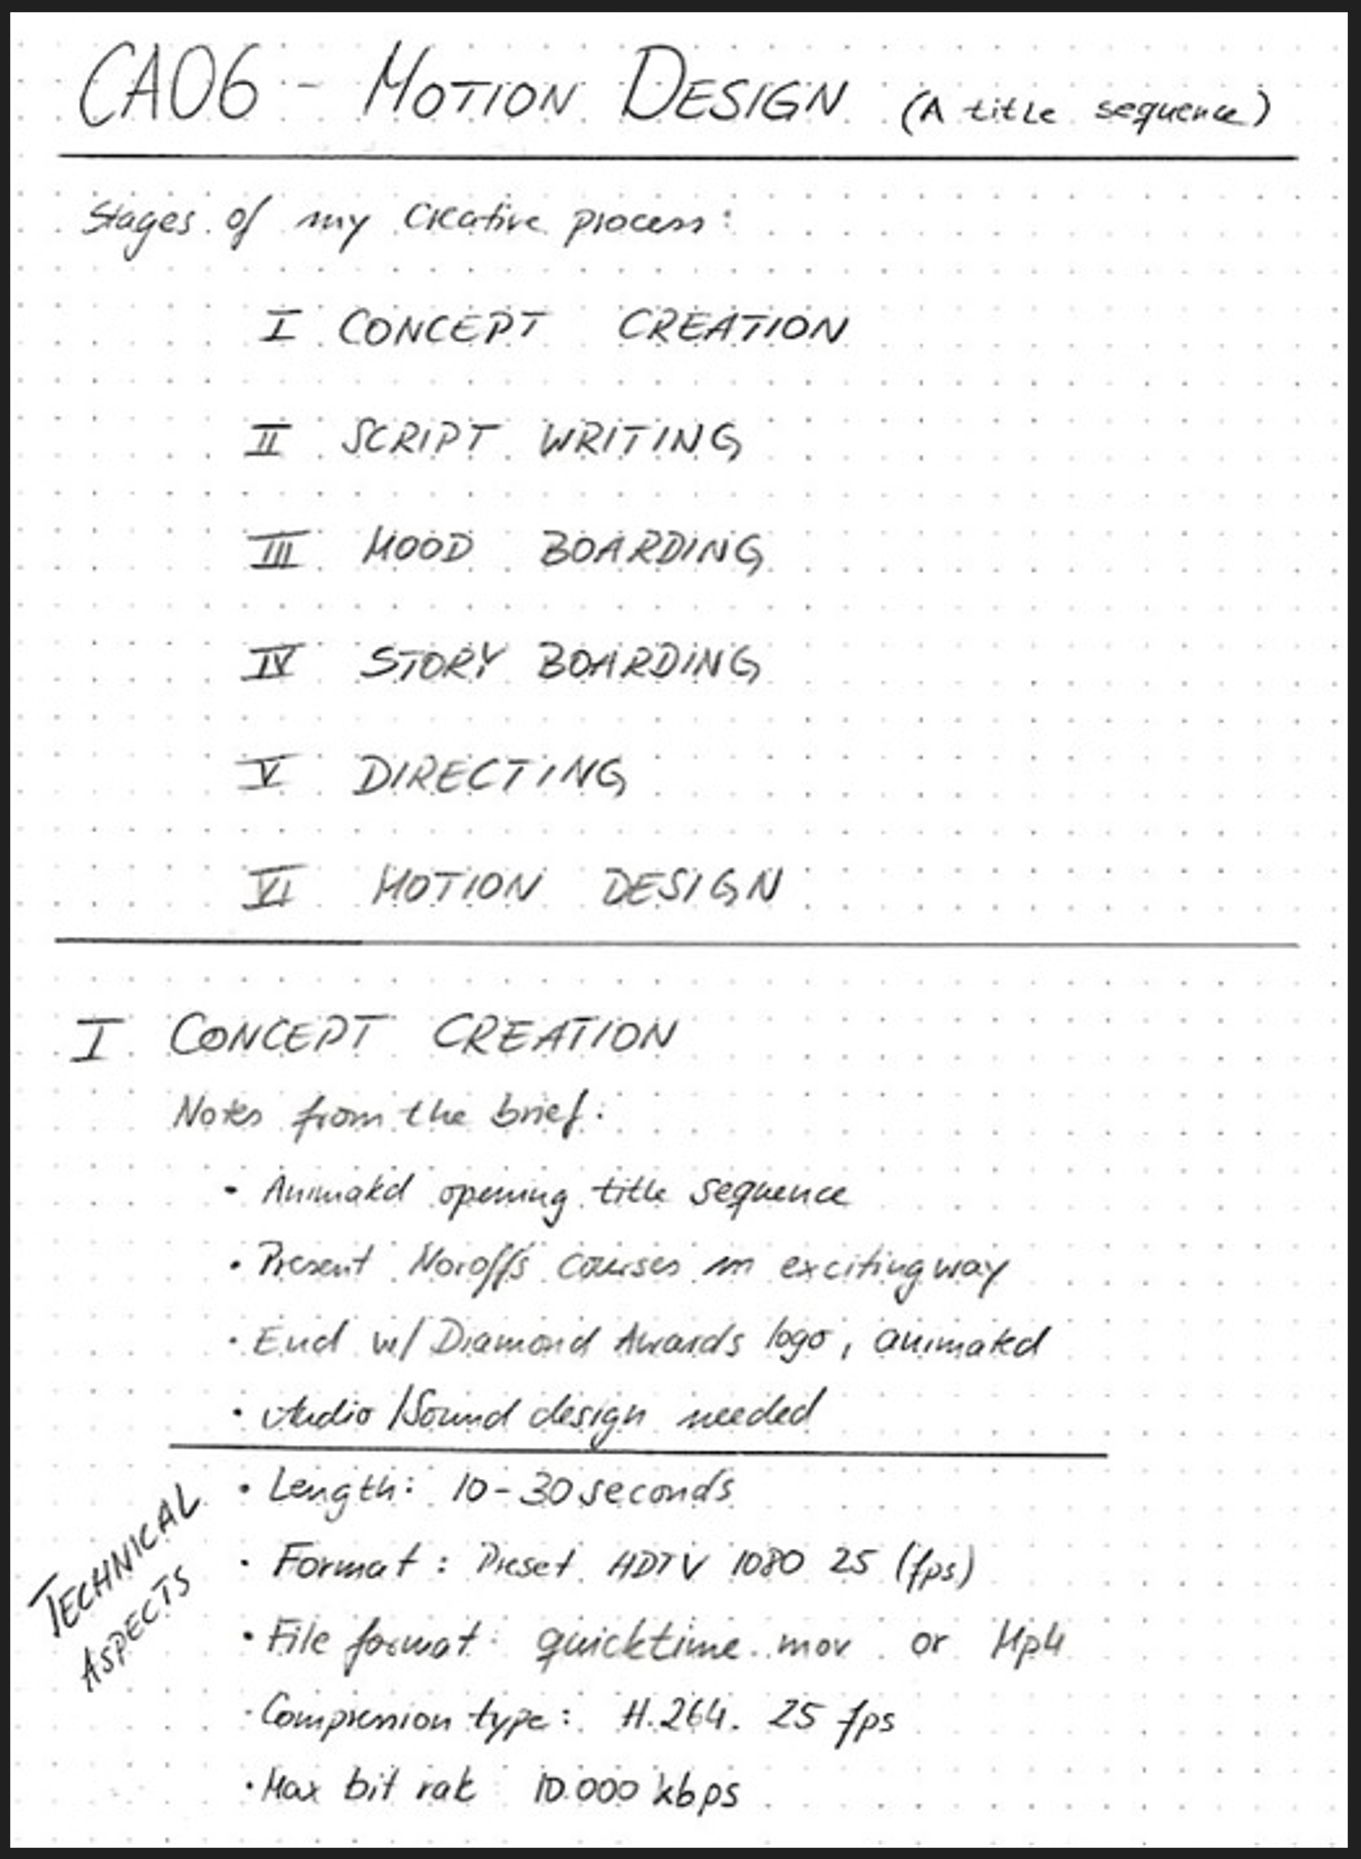 CA06 - MOTION DESIGN (A title sequence)
Stages of my creative process:
I CONCEPT CREATION
II SCRIPT WRITING
III MOOD BOARDING
IV STORY BOARDING
V DIRECTING
VI MOTION DESIGN
I CONCEPT CREATION
Notes from the brief:
• Animated opening title sequence
• Present Noroffs courses in exciting way
• End w/ Diamond Awards logo, animated
• Audio/Sound design needed
TECHNICAL
ASPECTS
• Length: 10-30 seconds
• Format: Preset HDTV 1080 25 (fps)
• File format: quicktime.mov or Mp4
• Compression type: H.264. 25 fps
• Max bit rate 10.000 kbps